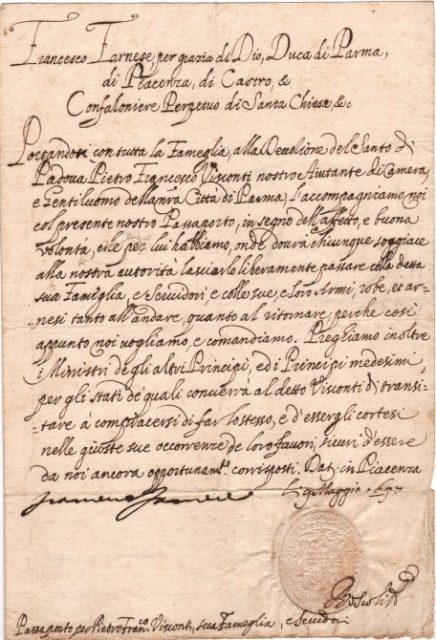 Francesco Farnese, per grazia di Dio, Duca di Parma,
di Piacenza, di Castro, &
Confaloniere Perpetuo di Santa Chiesa, &c
Portandosi con tutta la Fameglia, alla Devolione del Santo di
Padova Pietro Francesco Visconti nostro Aiutante di Camera,
e Gentiluomo della nra Città di Parma, l'accompagniamo noi
col presente nostro Passaporto, in segno dell'affetto, e buona
volontà, che per lui habbiamo, onde dourà chiunque soggiace
alla nostra autorità lasciarlo liberamente passare colla detta
sua Famiglia, e Seruidori, e colle sue, e loro Armi, robe, et ar-
nesi tanto all'andare, quanto al ritornare, perche così
appunto noi vogliamo, e comandiamo. Preghiamo inoltre
i Ministri degli altri Principi, ed i Principi medesimi,
per gli stati de' quali conuerrà al detto Visconti di transi-
tare à compiacersi di far lo stesso, e d'essergli cortesi
nelle giuste sue occorrenze de loro fauori, sicuri d'essere
da noi ancora opportunamte. corrisposti. Dat. in Piacenza
Maggio
Passaporto per Pietro Franco. Visconti, sua Fameglia, e Seruidori